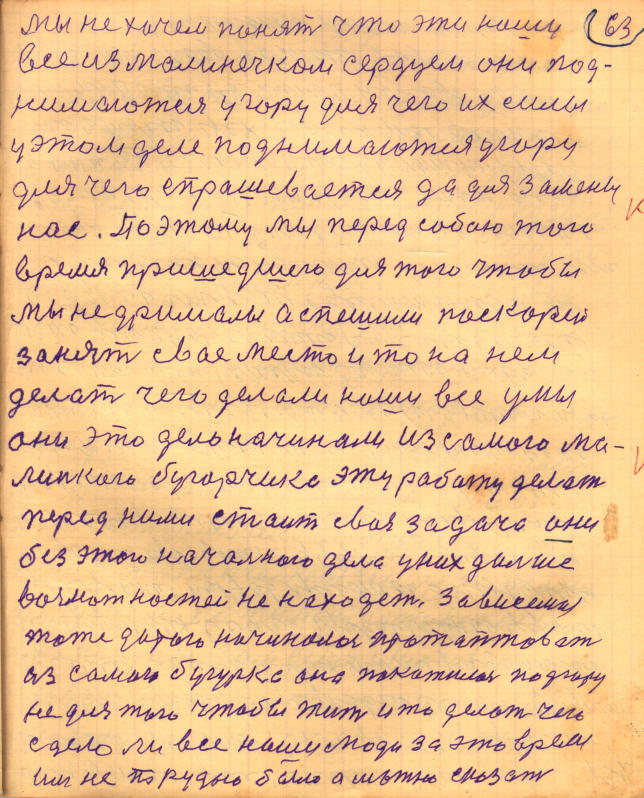 63
мы не хочем понят что эти наши
все из малинечком сердцем они под-
нимаются угору для чего их силы
у этом деле поднимаются угору
для чего спрашевается да для замены
нас. Поэтому мы перед собою того
время пришедшего для того чтобы
мы не дрималы а спешили поскорей
занят свае место и то на нем
делат чего делали наши все умы
они это дело начинали из самого ма-
липкого бугорчика эту работу делат
перед ними стаит своя задача они
без этого началного дела у них далше
возмотностей не находет. Зависем
тоже дотого начиналоя протаптоват
из самого бугурка она покатилоя подгору
не для того чтобы тит и то делат чего
сдело ли все наши люди за это время
им не по рудью было а мотно сказат